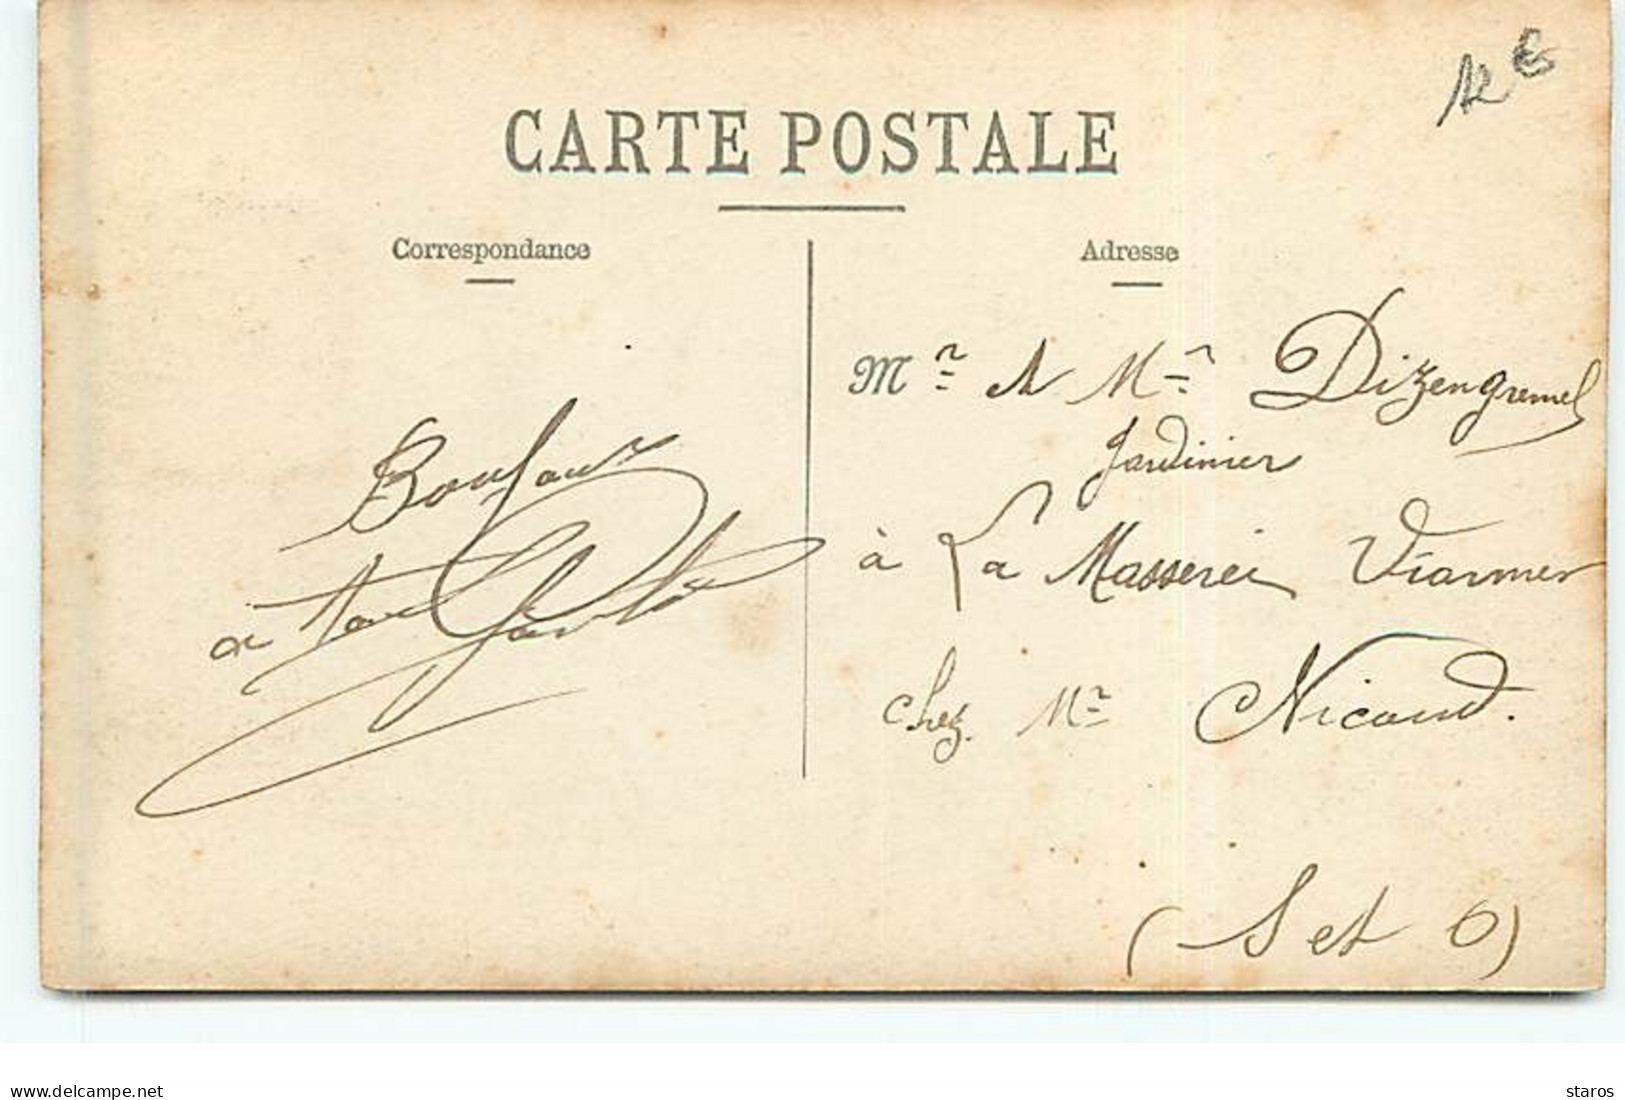 12 €
CARTE POSTALE
Correspondance
Adresse
Bonjour
a tous
Mr et Mr Dizengremel
Jardinier
à La Masserei Viarmer
chez Mr Nicoud.
(S et O)
www.delcampe.net
staros